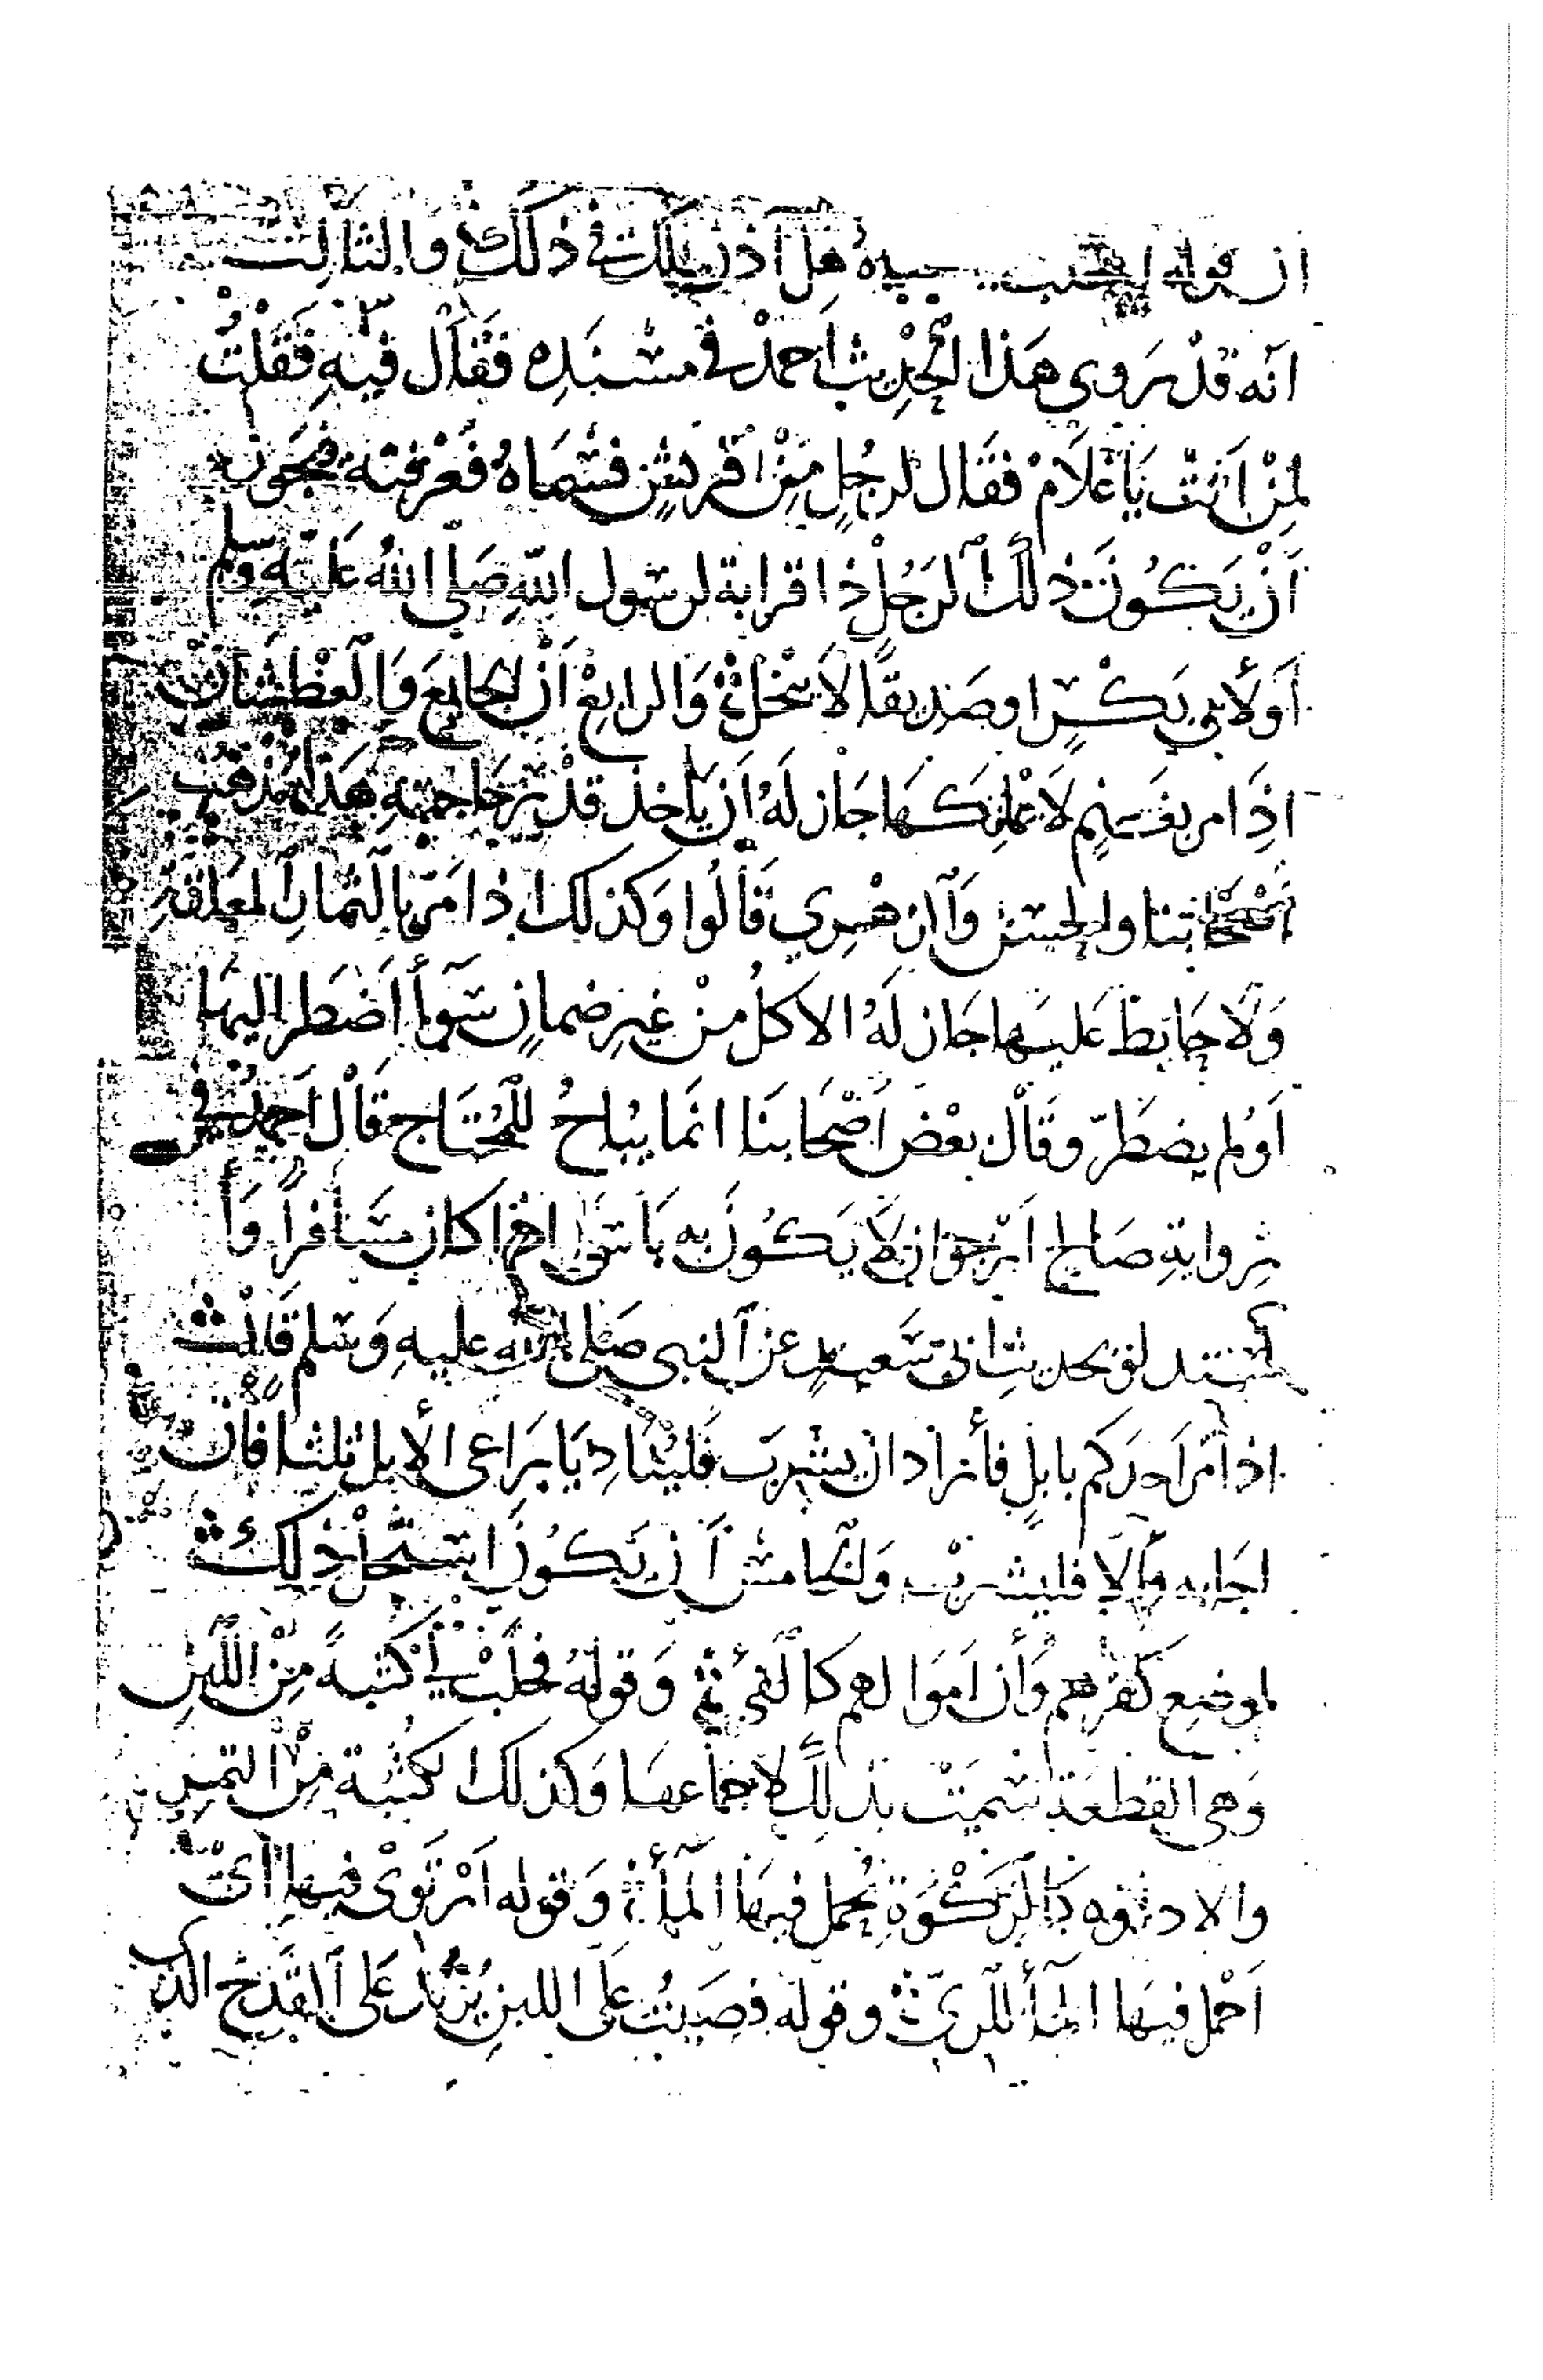 ان قوله هل اذن لك في ذلك والثالث
انه قد روى هذا الحديث احمد في مسنده فقال فيه فقلت
لمن انت يا غلام فقال لرجل من قريش فسماه فعرفته فيجوز
ان يكون ذلك الرجل ذا قرابة لرسول الله صلى الله عليه وسلم
او لابي بكر او صديقا لا يبخل والرابع ان الجايع والعطشان
اذا مر بغنم لا يملكها جاز له ان ياخذ قدر حاجته هذا مذهب
اصحابنا والحسن والزهري قالوا وكذلك اذا مر بالثمار المعلقة
ولا حايط عليها جاز له الاكل من غير ضمان سوأ اضطر اليها
او لم يضطر وقال بعض اصحابنا انما يباح للمحتاج قال احمد في
رواية صالح ارجو ان لا يكون به باس اذا كان مسافرا وأ
ستدلو بحديث ابي سعيد عن النبي صلى الله عليه وسلم قال
اذا مر احدكم بابل فأراد ان يشرب فليناد يا راعى الابل ثلثا فان
اجابه والا فليشرب والخامس ان يكون استحل ذلك
لموضع كفرهم وأن اموالهم كالفيء وقوله فحلب لي كثبة من اللبن
وهي القطعة سميت بذلك لاجتماعها وكذلك الكثبة من التمر
والاداوه كالركوة يحمل فيها المأ وقوله ارتوى فيها اي
احمل فيها المأ للري وقوله فصببت على اللبن يريد على القدح الذى